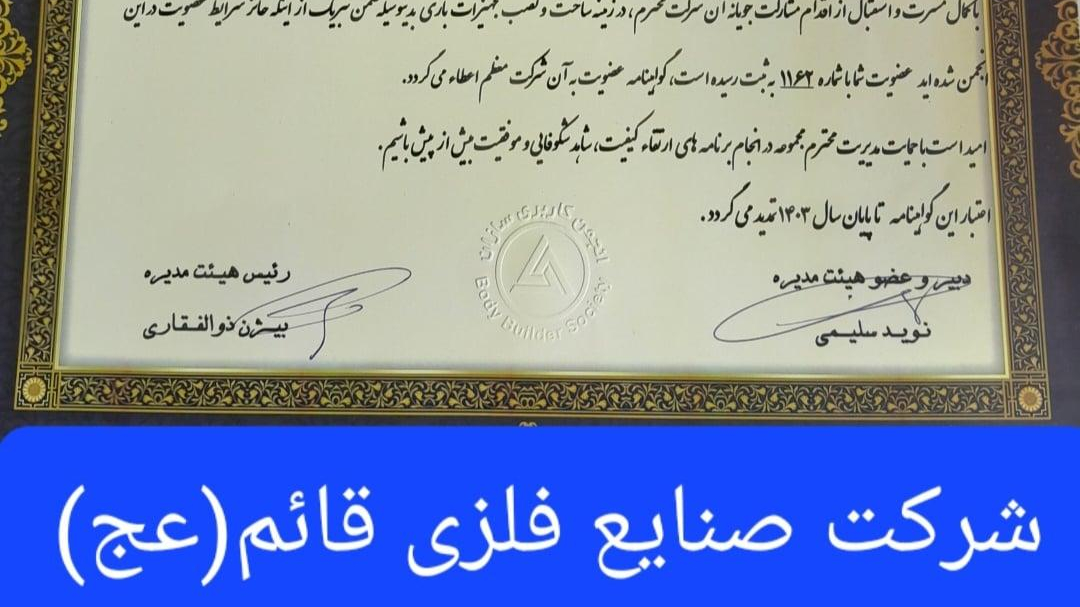 باکمال مسرت و استقبال از اقدام مشارکت جویانه آن شرکت محترم، در زمینه ساخت و نصب تجهیزات باری بدینوسیله ضمن تبریک از اینکه حائز شرایط عضویت در این
انجمن شده اید عضویت شما با شماره ۱۱۶۲ به ثبت رسیده است، گواهینامه عضویت به آن شرکت معظم اعطاء می گردد.
امید است با حمایت مدیریت محترم مجموعه در انجام برنامه های ارتقاء کیفیت، شاهد شکوفایی و موفقیت بیش از پیش باشیم.
اعتبار این گواهینامه تا پایان سال ۱۴۰۳ تمدید می گردد.
انجمن کاربری سازان
Body Builder Society
دبیر و عضو هیئت مدیره
نوید سلیمی
رئیس هیئت مدیره
بیژن ذوالفقاری
شرکت صنایع فلزی قائم(عج)